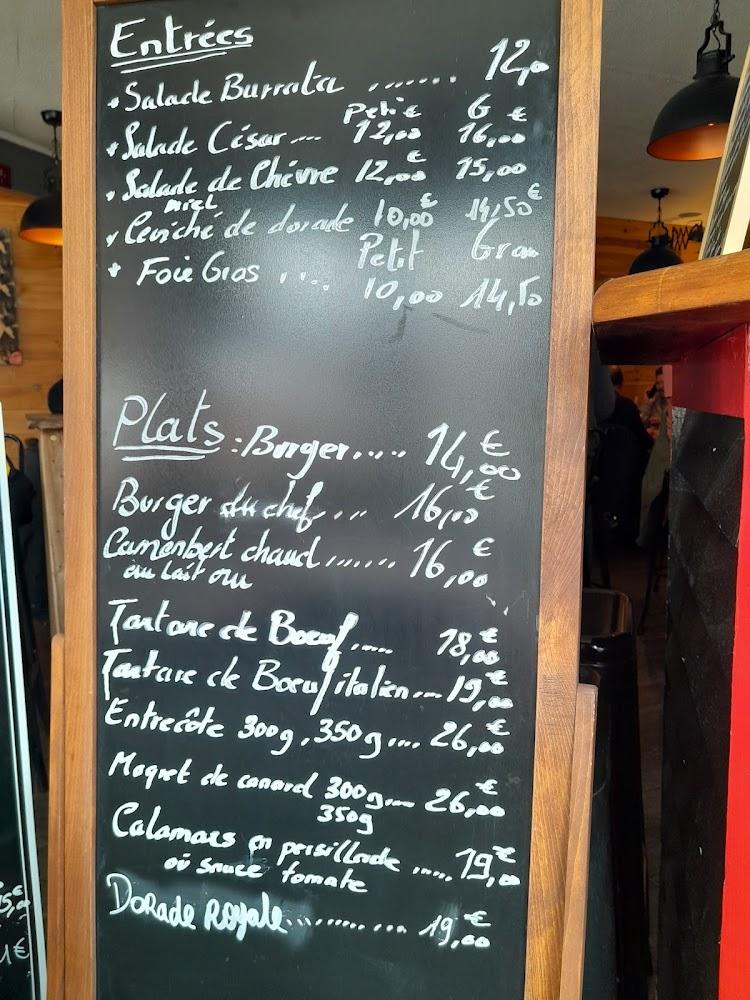 Entrées
* Salade Burrata ....... 12,00
Petit € G €
* Salade César .... 12,00 16,00
* Salade de Chèvre 12,00 € 15,00
miel
* Ceviché de dorade 10,00 € 14,50 €
Petit Gran
* Foie Gras .... 10,00 14,50
Plats : Burger ..... 14,00 €
Burger du chef .... 16,00 €
Camenbert chaud ....... 16,00 €
au lait cru
Tartare de Boeuf ..... 18,00 €
Tartare de Boeuf italien ... 19,00 €
Entrecôte 300g, 350g .... 26,00 €
Magret de canard 300g .... 26,00 €
350g
Calamars en persillade ..... 19,00 €
où sauce tomate
Dorade Royale ........... 19,00 €